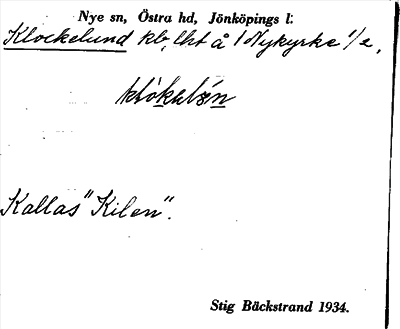 Nye sn, Östra hd, Jönköpings l:
Klockelund kb, lht å 1 Nykyrke 1/2,
Kallas "Kilen".
Stig Bäckstrand 1934.